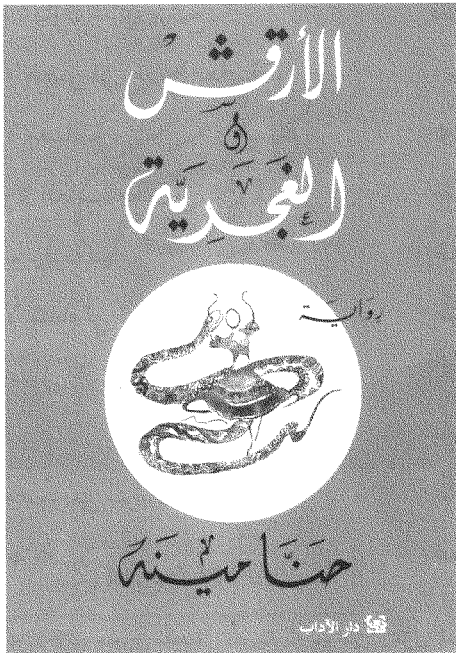 الأرقش
و
الغجرية
رواية
حنا مينه
دار الآداب